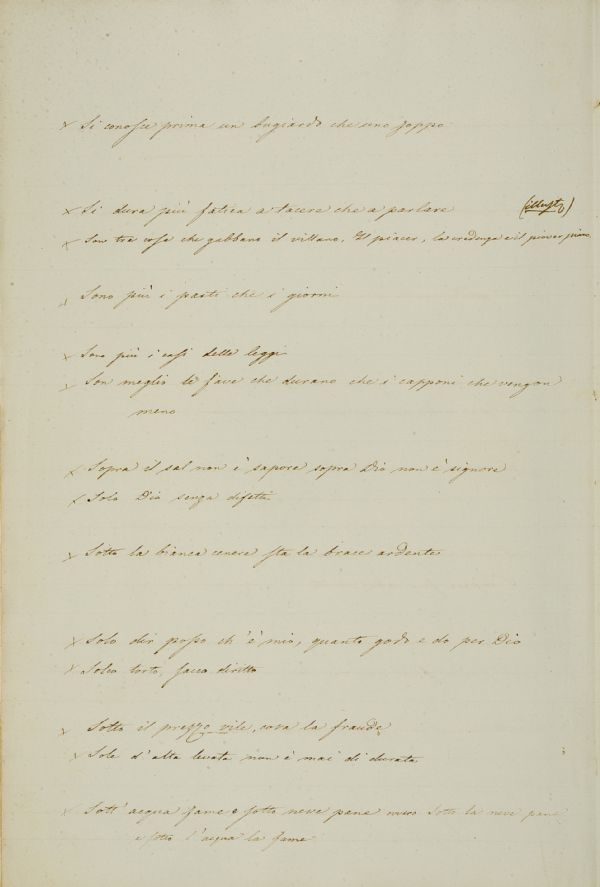 × Si conosce prima un bugiardo che uno zoppo
× Si dura più fatica a tacere che a parlare
× Son tre cose che gabbano il villano, Il piacer, la credenza e il piover piano
× Sono più i pasti che i giorni
× Sono più i casi delle leggi
× Son meglio le fave che durano che i capponi che vengon
meno
× Sopra il sal non è sapore sopra Dio non è signore
× Solo Dio senza difetti
× Sotto la bianca cenere sta la brace ardente
× Solo dir posso ch'è mio, quanto godo e do per Dio
× Solco torto, sacco diritto
× Sotto il prezzo vile, cova la fraude
× Sole d'alta levata non è mai di durata
× Sott'acqua fame e sotto neve pane ovvero Sotto la neve pane
e sotto l'acqua la fame